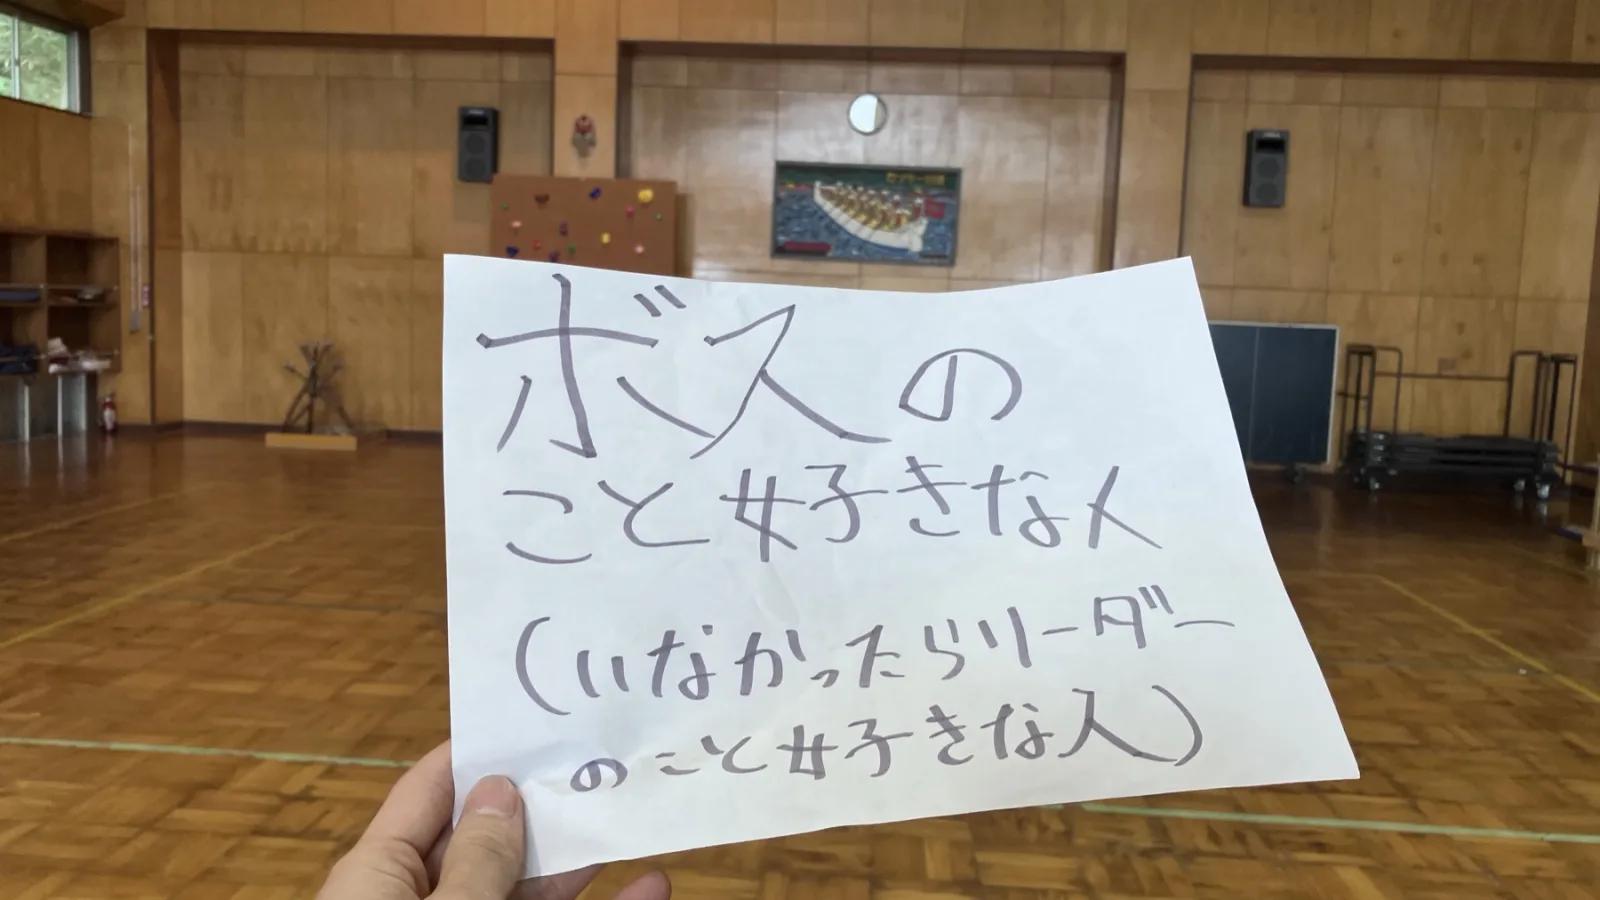 ボスの
こと好きな人
(いなかったらリーダー
のこと好きな人)